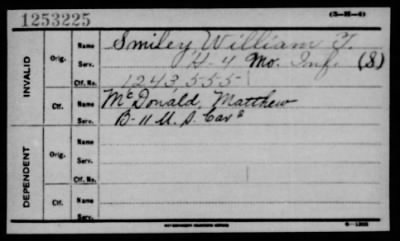 1253225
(3-H-4)
INVALID
Orig.
Name Smiley, William T.
Serv. H-4 Mo. Inf. (S)
Ctf. No. 1243555
Ctf.
Name McDonald, Matthew
Serv. B-11 U.S. Cav
DEPENDENT
Orig.
Name
Serv.
Ctf. No.
Ctf.
Name
Serv.